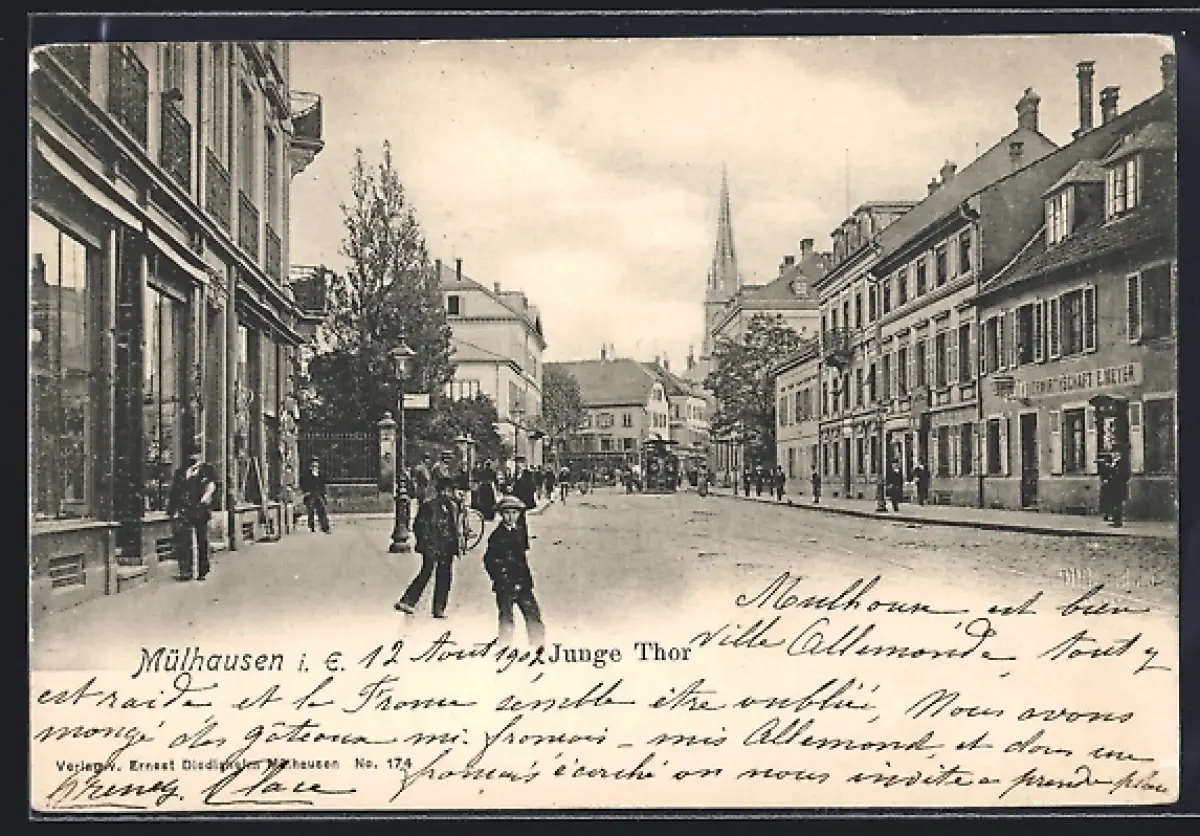 WIRTSCHAFT E. MEYER
Mülhausen i. E. 12 Aout 1902 Junge Thor
Mulhouse est bien
Ville Allemande tout y
est raide et la France semble être oubliée, Nous avons
mangé des gâteaux mi. francais - mis Allemand et dans un
Verlag v. Ernest Mülhausen No. 174
francais écorché on nous invite a prendre place
Prenez Place